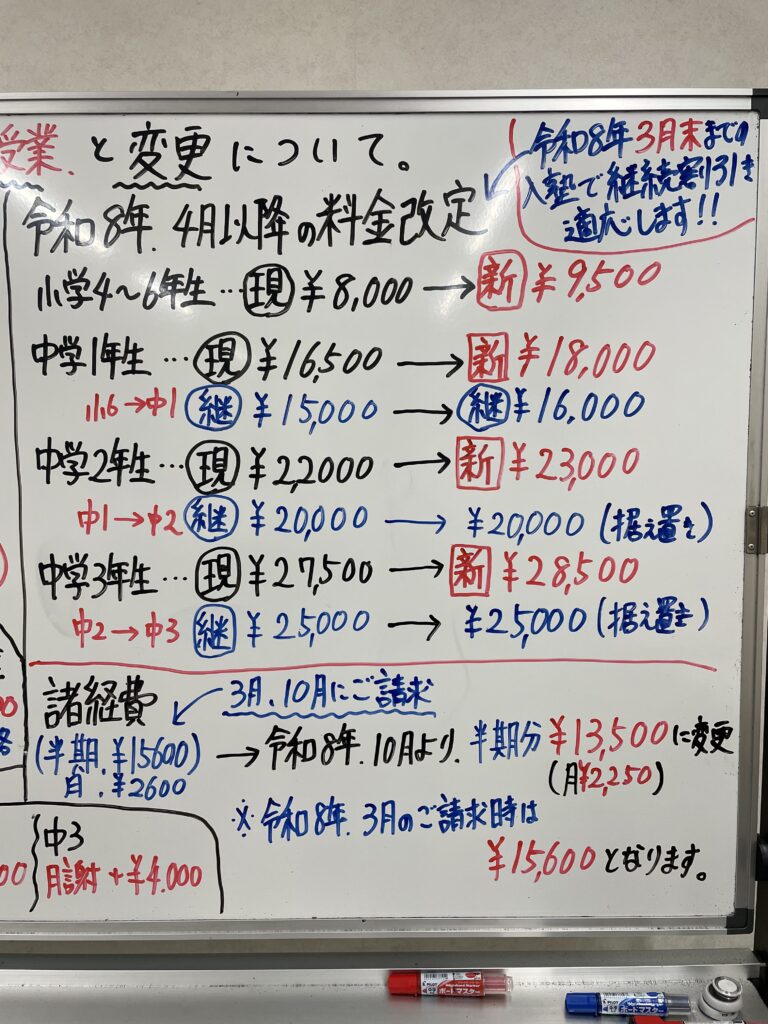 授業.と変更について。
令和8年3月末までの
入塾で継続割引き
適応します!!
令和8年.4月以降の料金改定
小学4〜6年生…現¥8,000→新¥9,500
中学1年生…現¥16,500→新¥18,000
小6→中1継¥15,000→継¥16,000
中学2年生…現¥22,000→新¥23,000
中1→中2継¥20,000→¥20,000(据え置き)
中学3年生…現¥27,500→新¥28,500
中2→中3継¥25,000→¥25,000(据え置き)
諸経費
3月、10月にご請求
(半期.¥15600)→令和8年.10月より.半期分¥13,500に変更
月.¥2600
(月¥2,250)
※令和8年.3月のご請求時は
¥15,600となります。
中3
月謝+¥4.000
PILOT
ボードマスター
PILOT
ボードマスター